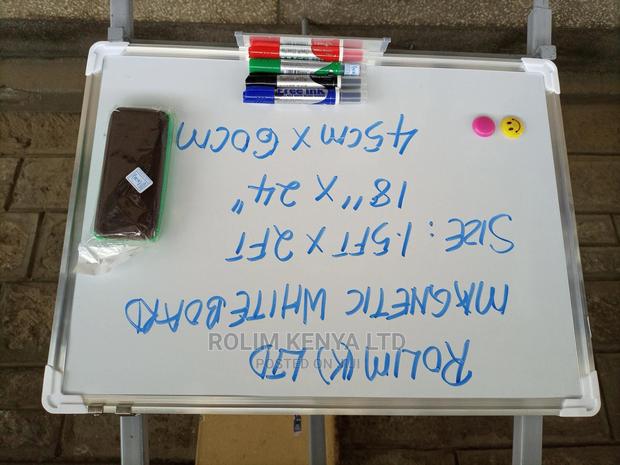 ROLIM(K) LTD
MAGNETIC WHITEBOARD
SIZE: 1.5FT X 2FT
18" X 24"
45cm X 60cm
Free ink
ROLIM KENYA LTD
POSTED ON JIJI